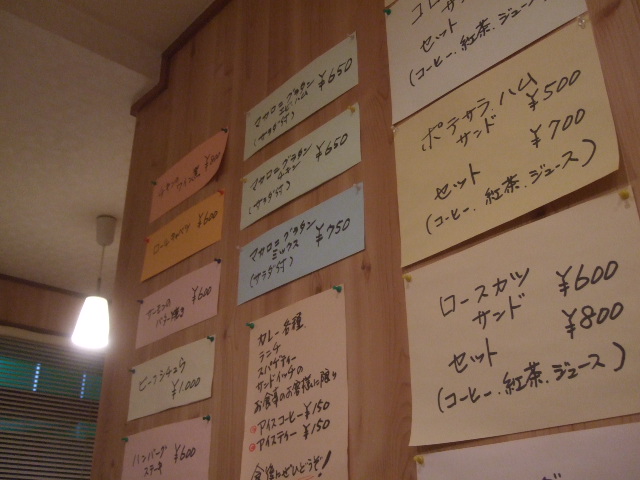 ¥600
ロールキャベツ
¥600
サーモンの
バター焼き
¥600
ビーフシチュウ
¥1.000
ハンバーグ
ステーキ
¥600
マカロニグラタン
エビ.ハム
(サラダ付)
¥650
マカロニグラタン
チキン
(サラダ付)
¥650
マカロニグラタン
ミックス
(サラダ付)
¥750
カレー各種
ランチ
スパゲティー
サンドイッチの
お食事のお客様に限り
アイスコーヒー ¥150
アイスティー ¥150
食後にぜひどうぞ!
セット
(コーヒー.紅茶.ジュース)
ポテサラ.ハム
サンド
¥500
¥700
セット
(コーヒー.紅茶.ジュース)
ロースカツ
サンド
¥600
¥800
セット
(コーヒー.紅茶.ジュース)